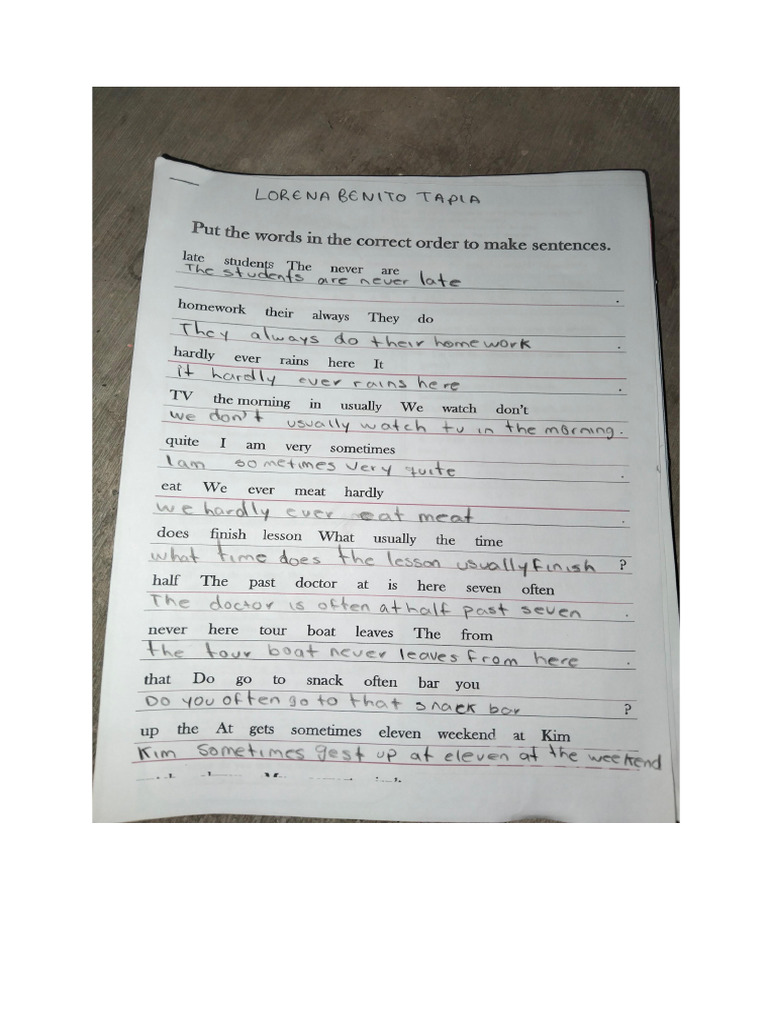 LORENA BENITO TAPIA
Put the words in the correct order to make sentences.
late students The never are
The students are never late
.
homework their always They do
They always do their homework .
hardly ever rains here It
it hardly ever rains here .
TV the morning in usually We watch don't
we don't usually watch tv in the morning.
quite I am very sometimes
I am sometimes very quite .
eat We ever meat hardly
we hardly ever eat meat .
does finish lesson What usually the time
what time does the lesson usually finish ?
half The past doctor at is here seven often
The doctor is often at half past seven .
never here tour boat leaves The from
the tour boat never leaves from here .
that Do go to snack often bar you
Do you often go to that snack bar ?
up the At gets sometimes eleven weekend at Kim
Kim sometimes gest up at eleven at the weekend